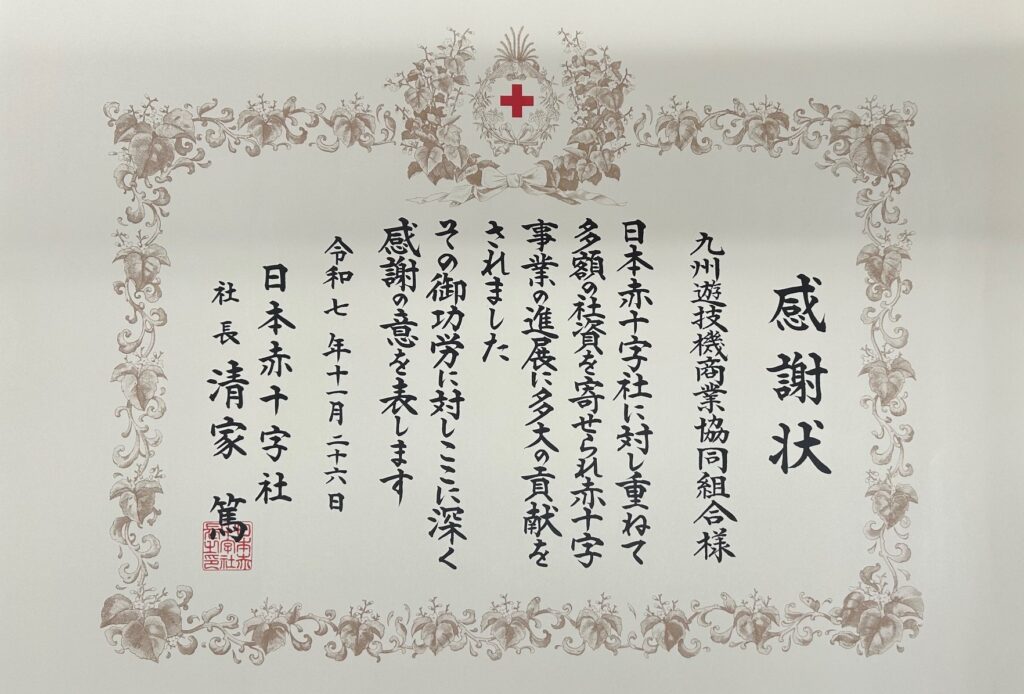 感謝状
九州遊技機商業協同組合様
日本赤十字社に対し重ねて
多額の社資を寄せられ赤十字
事業の進展に多大の貢献を
されました
その御功労に対しここに深く
感謝の意を表します
令和七年十一月二十六日
日本赤十字社
社長 清家 篤